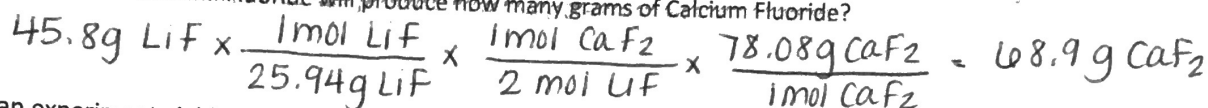 produce how many grams of Calcium Fluoride?
45.8g LiF x 1mol LiF / 25.94g LiF x 1mol CaF2 / 2 mol LiF x 78.08g CaF2 / 1mol CaF2 = 68.9 g CaF2
an